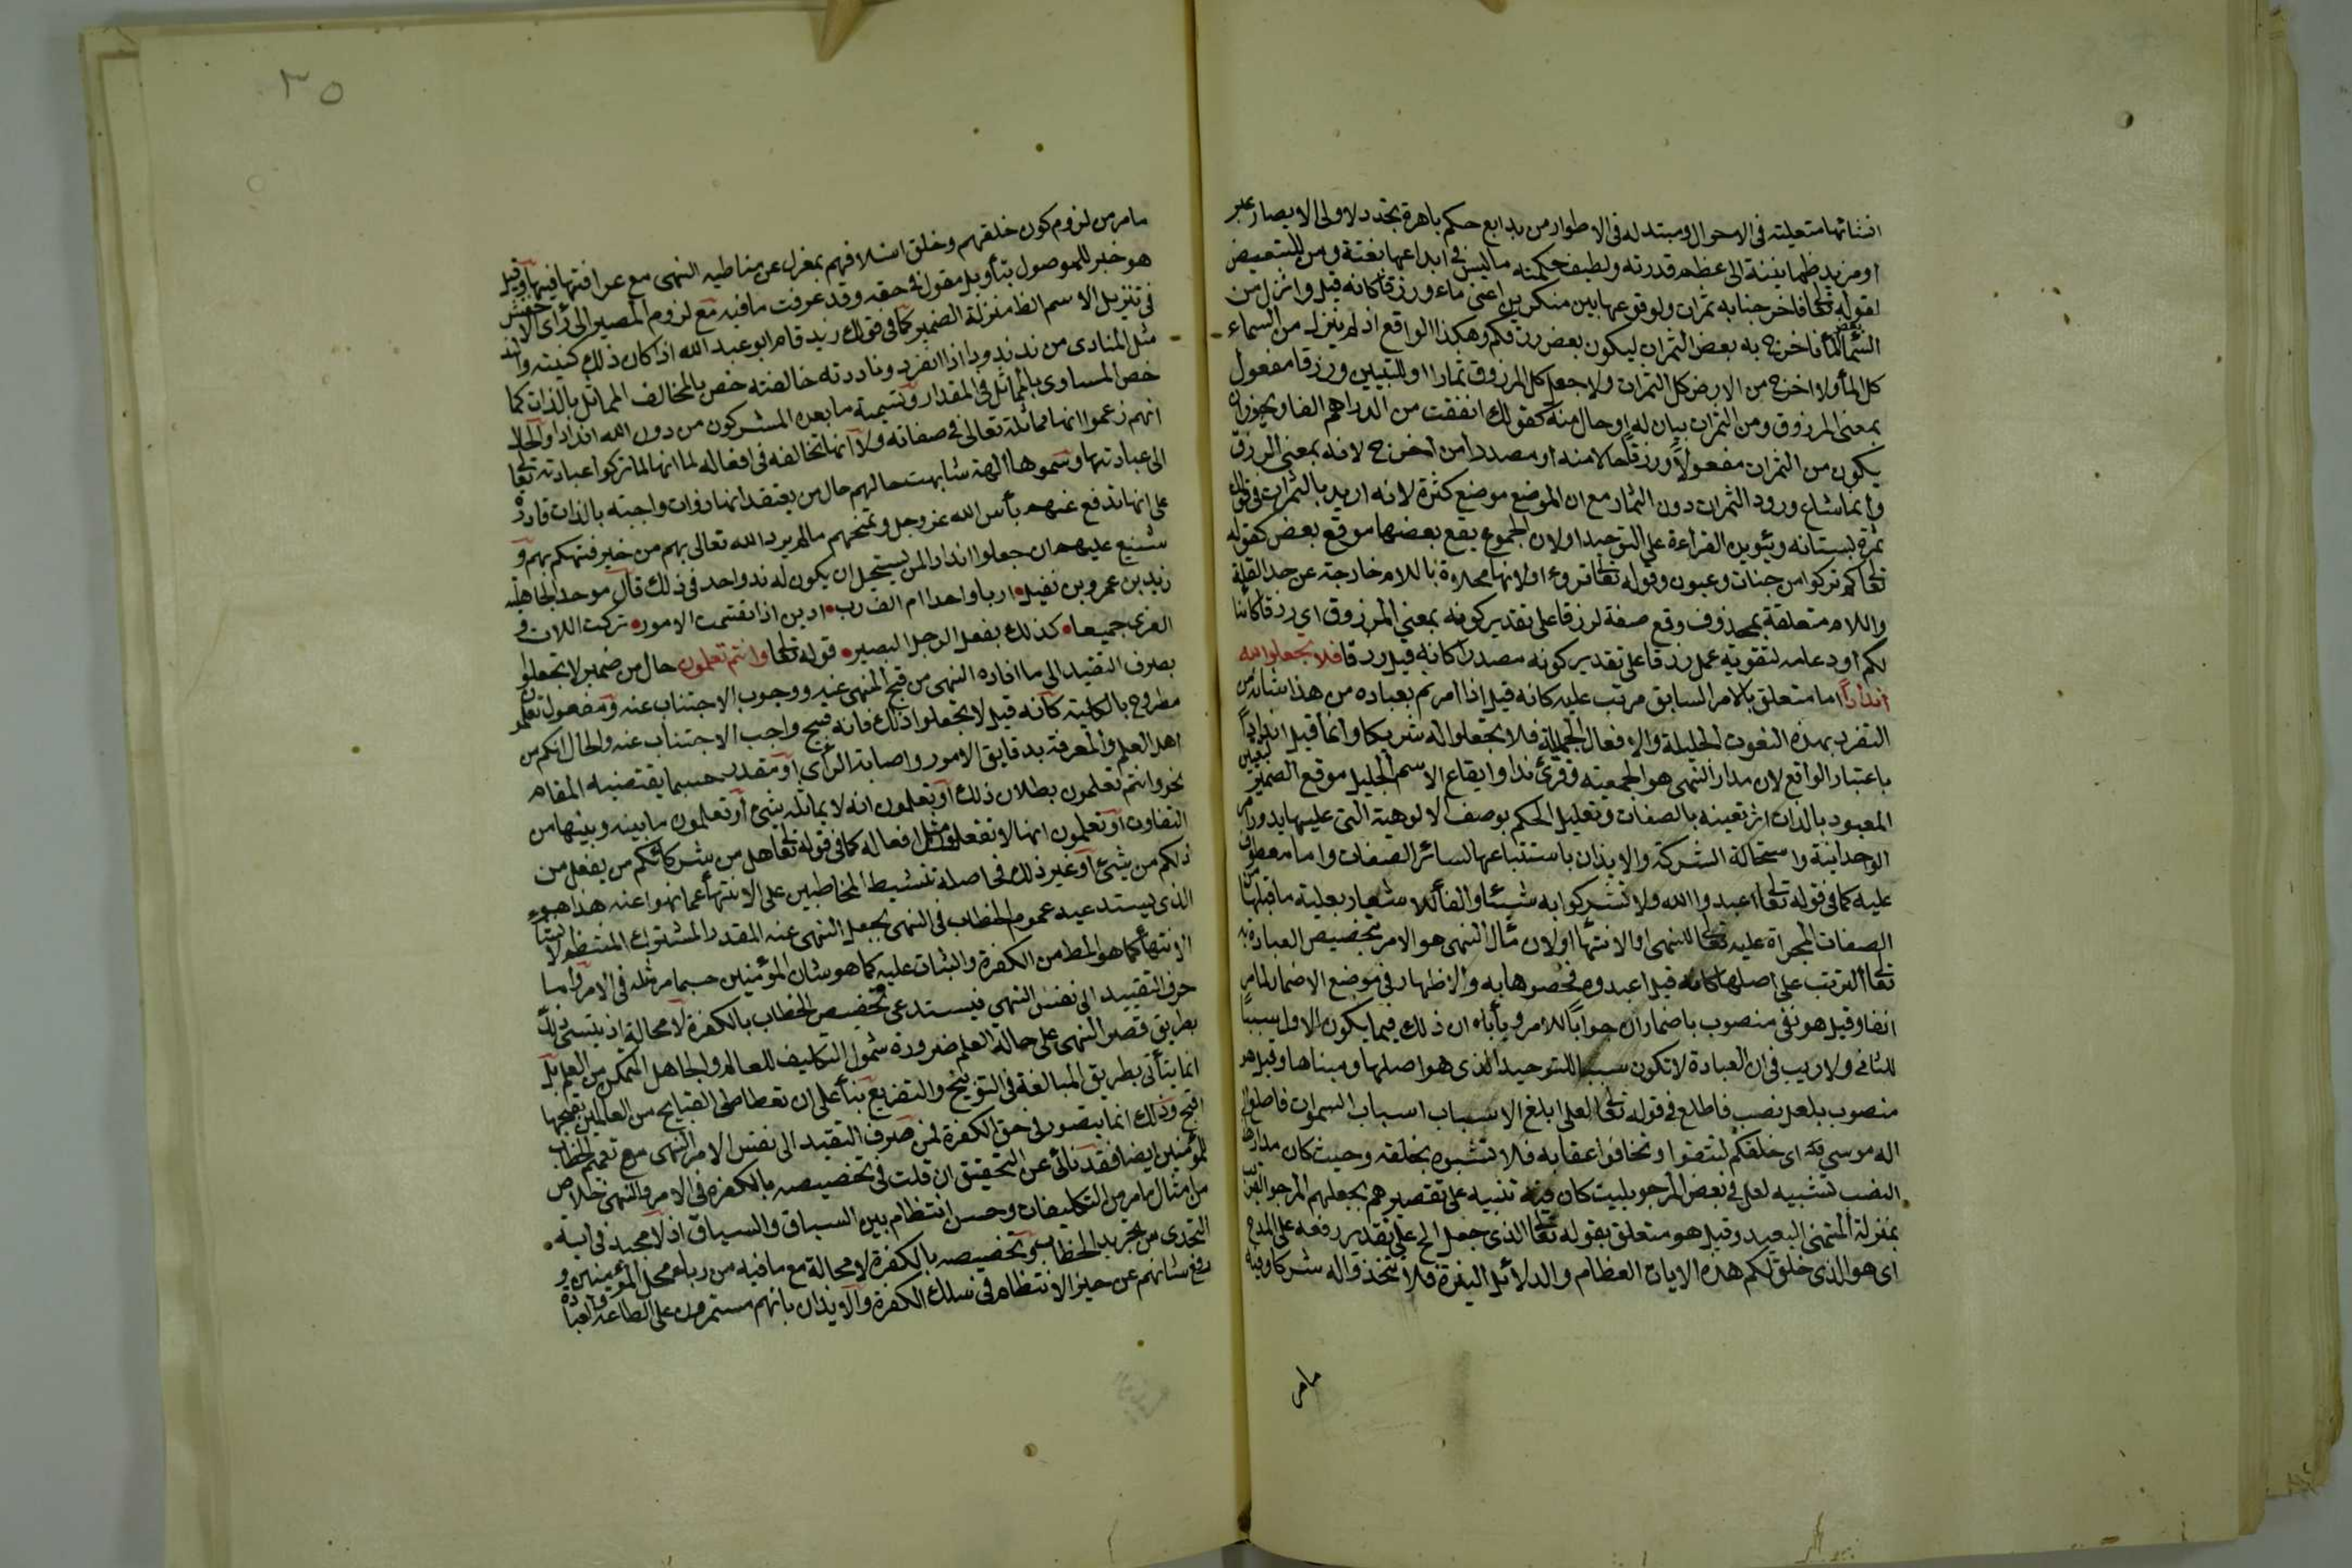 انشائها متعلية في الاحوال ومبتدلة في الاطوار من بدايع حكم باهرة بتجدد لاولي الابصار عبر
او مزيد طمانينة الى عظم قدرته ولطيف حكمته ما ليس في ابداعها بغتة ومن للتبعيض
لقوله تعالى فاخرجنا به ثمرات ولوقوعها بين منكرين اعنى ماء ورزقا كانه قيل وانزل من
السماء بعض الماء فاخرج به بعض الثمرات ليكون بعض رزقكم وهكذا الواقع اذ لم ينزل من السماء
كل الماء ولا اخرج من الارض كل الثمرات ولا جعل كل المرزوق ثمارا او للتبيين ورزقا مفعول
بمعنى المرزوق ومن الثمرات بيان له او حال منه كقولك انفقت من الدراهم الفا ويجوز ان
يكون من الثمرات مفعولا ورزقا حالا منه او مصدرا من اخرج لانه بمعنى الرزق
وانما شاع ورود الثمرات دون الثمار مع ان الموضع موضع كثرة لانه اريد بالثمرات في قولك
ثمرة بستانه ويئويه القراءة على التوحيد او لان الجموع يقع بعضها موقع بعض كقوله
تعالى كم تركوا من جنات وعيون وقوله تعالى ثلثة قروء او لانها محلاة باللام خارجة عن حد القلة
واللام متعلقة بمحذوف وقع صفة لرزقا على تقدير كونه بمعنى المرزوق اي رزقا كائنا
لكم او دعامه لتقوية عمل رزقا على تقدير كونه مصدرا كانه قيل رزقا فلا تجعلوا لله
اندادا اما متعلق بالامر السابق مرتب عليه كانه قيل اذا امرتم بعبادة من هذا شانه من
التفرد بهذه النعوت الجليلة والافعال الجميلة فلا تجعلوا له شريكا وانما قيل اندادا
باعتبار الواقع لان مدار النهى هو الجمعية وقرئ ندا وايقاع الاسم الجليل موقع الضمير لتعيين
المعبود بالذات اثر تعيينه بالصفات وتعليل الحكم بوصف الالوهية التى عليها يدور امر
الوحدانية واستحالة الشركة والايذان باستتباعها لسائر الصفات واما معطوف
عليه كما فى قوله تعالى اعبدوا الله ولا تشركوا به شيئا والفاء للاشعار بعلية ما قبلها من
الصفات المجراة عليه تعالى للنهى او الانتهاء او لان مآل النهى هو الامر بتخصيص العبادة به
تعالى المترتب على اصلها كانه قيل اعبدوه فخصوها به والاظهار في موضع الاضمار لما مر
انفا وقيل هو نفى منصوب باضمار ان جوابا للامر ويأباه ان ذلك فيما يكون الاول سببا
للثانى ولا ريب فى ان العبادة لا تكون سببا للتوحيد الذى هو اصلها ومبناها وقيل هو
منصوب بلعل نصب فاطلع في قوله تعالى لعلى ابلغ الاسباب اسباب السموات فاطلع الى
اله موسى اى خلقكم لتتقوا وتخافوا عقابه فلا تشبهوه بخلقه وحيث كان مدار هذا
النصب تشبيه لعل فى بعض المرجو بليت كان فيه تنبيه على تقصيرهم بجعلهم المرجو القريب
بمنزلة المتمنى البعيد وقيل هو متعلق بقوله تعالى الذى جعل الخ على تقدير رفعه على المدح
اى هو الذى خلق لكم هذه الايات العظام والدلائل النيرة فلا تتخذوا له شركا وفيه
ما مر
٣٥
ما مر من لزوم كون خلقهم وخلق اسلافهم بمعزل عن مناطية النهى مع عراقتها فيها وقيل
هو خبر للموصول بتأويل مقول في حقه وقد عرفت ما فيه مع لزوم المصير الى رأى الاخفش
فى تنزيل الاسم الظ منزلة الضمير كما فى قولك زيد قام ابو عبد الله اذا كان ذلك كنيته والند
مثل المنادى من ند ندودا اذا انفرد وناددته خالفته خص بالمخالف المماثل بالذات كما
خص المساوى بالمماثل فى المقدار وتسمية ما يعبده المشركون من دون الله اندادا والحال
انهم زعموا انها مماثلة تعالى في صفاته ولا انها تخالفه فى افعاله لما انهم لما تركوا عبادته تعالى
الى عبادتها وسموها آلهة شابهت حالهم حال من يعتقد انها ذوات واجبة بالذات قادرة
على انها تدفع عنهم بأس الله عز وجل وتمنحهم ما لم يرد الله تعالى بهم من خير فتهكم بهم و
شنع عليهم ان جعلوا اندادا لمن يستحيل ان يكون له ند واحد فى ذلك قال موحد الجاهلية
زيد بن عمرو بن نفيل اربا واحدا ام الف رب ادين اذا تقسمت الامور تركت اللات و
العزى جميعا كذلك يفعل الرجل البصير قوله تعالى وانتم تعلمون حال من ضمير لا تجعلوا
بصرف التقييد الى ما افاده النهى من قبح المنهى عنه ووجوب الاجتناب عنه ومفعول تعلمون
مطروح بالكلية كانه قيل لا تجعلوا ذلك فانه قبيح واجب الاجتناب عنه والحال انكم من
اهل العلم والمعرفة بدقايق الامور واصابة الرأى او مقدر حسبما يقتضيه المقام
نحو وانتم تعلمون بطلان ذلك او تعلمون انه لا يماثله شئ او تعلمون ما بينه وبينها من
التفاوت او تعلمون انها لا تفعل مثل افعاله كما فى قوله تعالى هل من شركائكم من يفعل من
ذلكم من شئ او غير ذلك فحاصله تنشيط المخاطبين على الانتهاء عما نهوا عنه هذا هو
الذى يستدعيه عموم الخطاب فى النهى بجعل النهى عنه المقدر المشترك المنتظم لانشاء
الانتهاء كما هو المط من الكفرة والثبات عليه كما هو شان المؤمنين حسبما مر مثله فى الامر واما
حرف التقييد الى نفس النهى فيستدعى تخصيص الخطاب بالكفرة لا محالة اذ لا يتسنى ذلك
بطريق قصر النهى على حالة العلم ضرورة شمول التكليف للعالم والجاهل المتمكن من العلم بل
انما يتأتى بطريق المبالغة فى التوبيخ والتقريع بناء على ان تعاطى القبايح من العالمين بقبحها
اقبح وذلك انما يتصور فى حق الكفرة لمن صرف التقييد الى نفس الامر النهى مع تعميم الخطاب
للمؤمنين ايضا فقد نأى عن التحقيق ان قلت فى تخصيصه بالكفرة فى الامر والنهى خلاص
من امثال ما مر من التكليفات وحسن انتظام بين السباق والسياق اذ لا محيد فى اية
التحدى من تجريد الخطاب وتخصيصه بالكفرة لا محالة مع ما فيه من رباء محل المؤمنين و
رفع شانهم عن حيز الانتظام فى سلك الكفرة والايذان بانهم مستمرون على الطاعة والعبادة